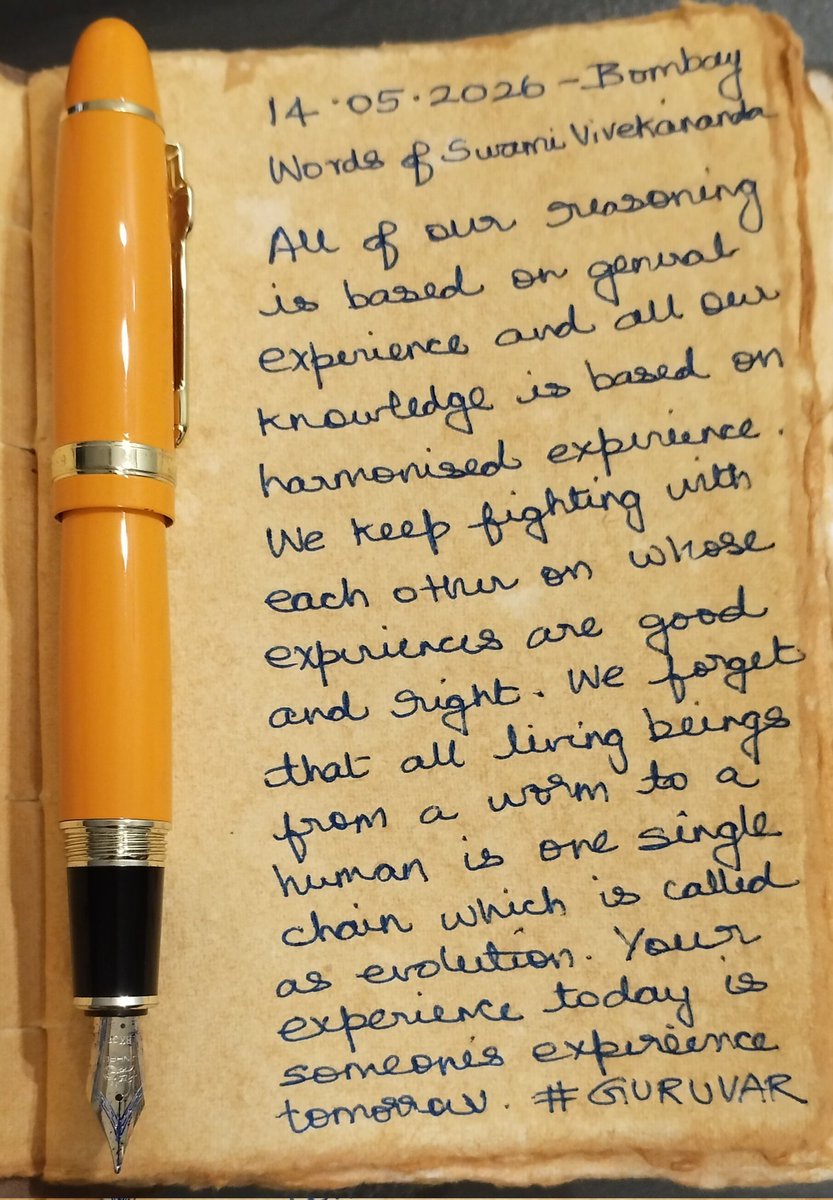 14.05.2026 - Bombay
Words of Swami Vivekananda
All of our reasoning
is based on general
experience and all our
knowledge is based on
harmonised experience.
We keep fighting with
each other on whose
experiences are good
and right. We forget
that all living beings
from a worm to a
human is one single
chain which is called
as evolution. Your
experience today is
someone's experience
tomorrow. #GURUVAR